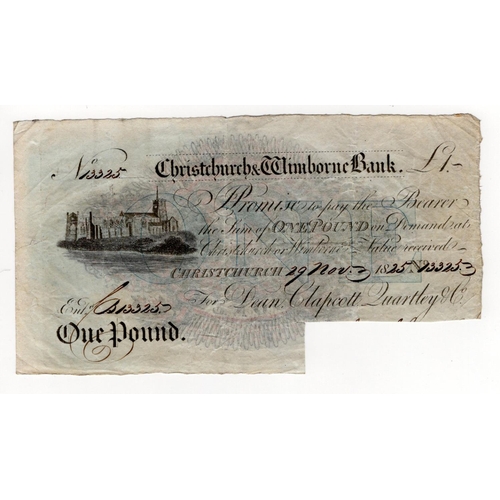 No 13325 Christchurch & Wimborne Bank. £1.-
I Promise to pay the Bearer
the Sum of ONE POUND on Demand at
Christchurch or Wimborne Value received
CHRISTCHURCH 29 Nov. 1825 No 13325
For Dean, Clapcott, Quartley & Co.
Entd. 13325
One Pound.